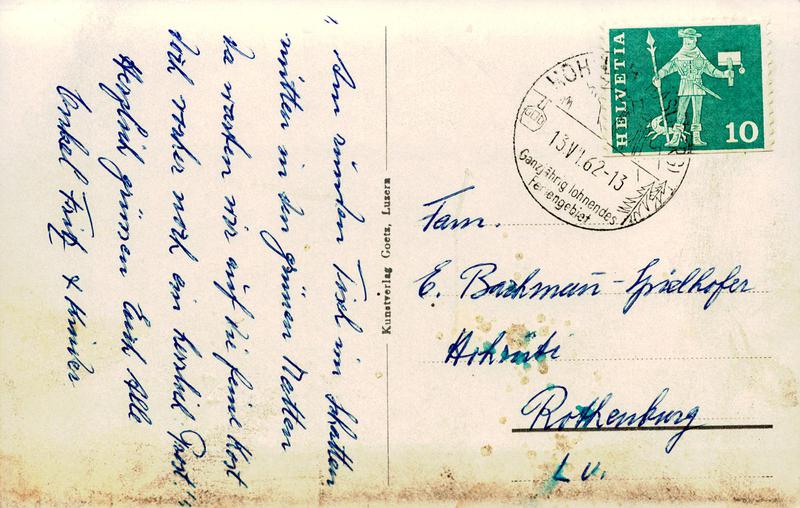 „Am runden Tisch im Schatten
mitten in den grünen Matten
da warten wir auf die feine Kost
doch vorher noch ein herzlich Prost!"
Herzlich grüssen Euch Alle
Onkel Fritz & Kinder
Kunstverlag Goetz, Luzern
HELVETIA
10
13.VI.62-13
Ganzjährig lohnendes
Feriengebiet
Fam.
E. Bachmann-Spielhofer
Rothenburg
LU.